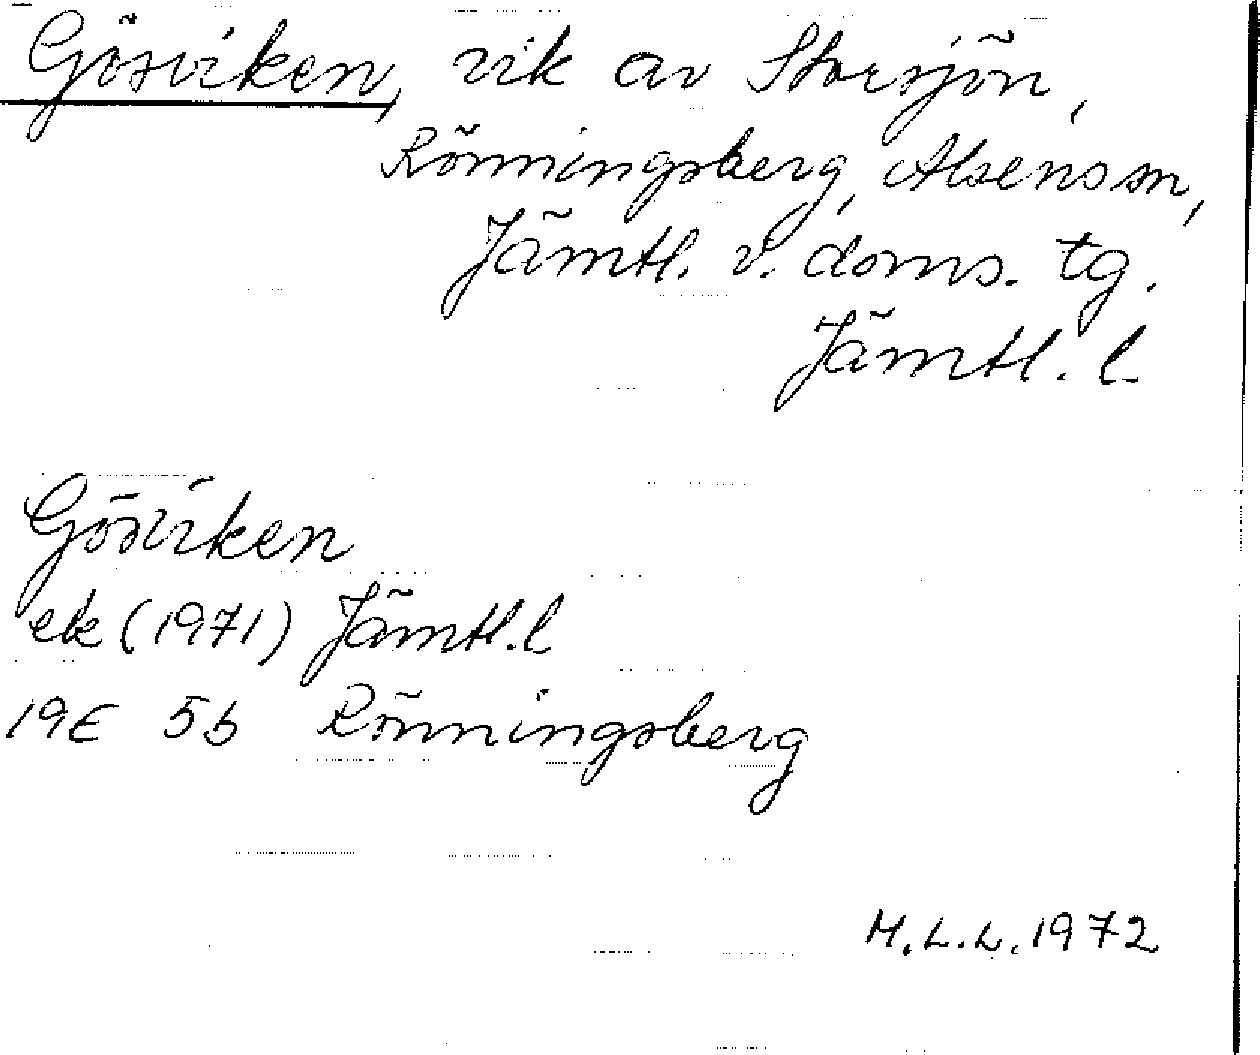 Gösviken, vik av Storsjön,
Rönningsberg, Alsens sn,
Jämtl. v. doms. tg.
Jämtl. l.
Gösviken
ek (1971) Jämtl. l
19E 5b Rönningsberg
M.L.L. 1972